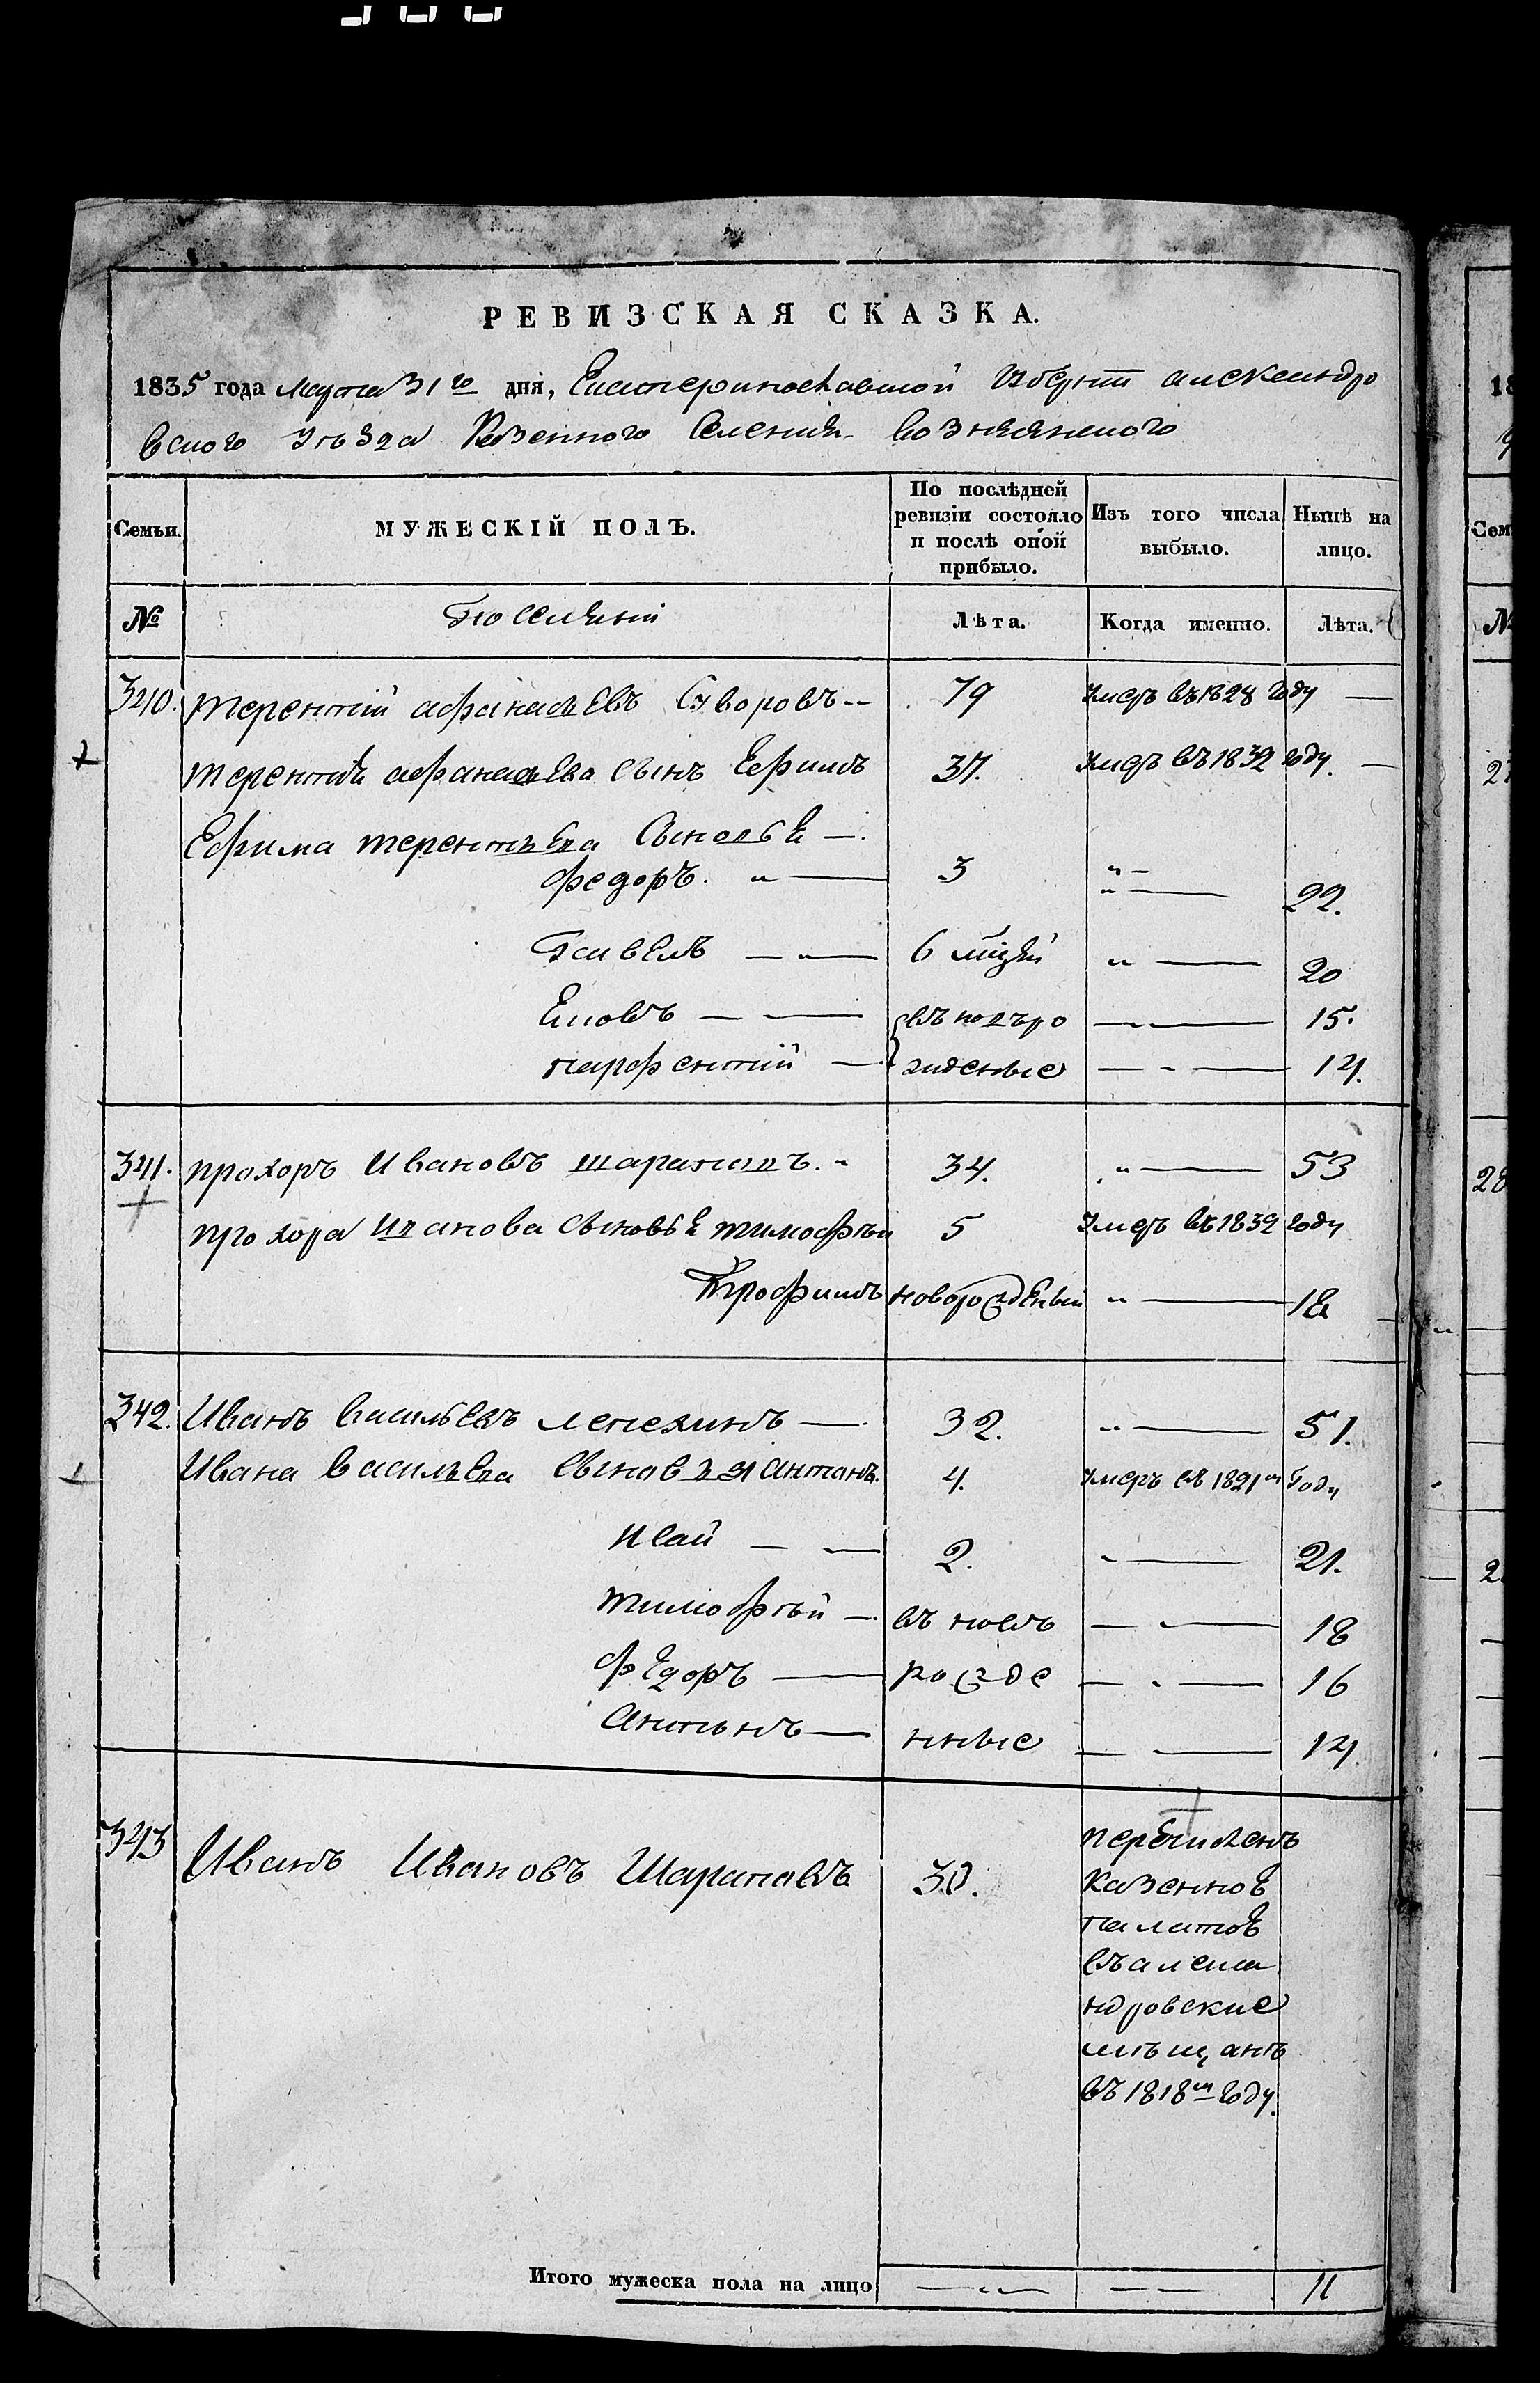 РЕВИЗСКАЯ СКАЗКА.
1835 года марта 31го дня, Екатеринославской Губернiи александро
вского уѣзда Казенного Селенiя Вознесенского
Семьи.
МУЖЕСКIЙ ПОЛЪ.
По послѣдней ревизiи состояло и послѣ оной прибыло.
Изъ того числа выбыло.
Нынѣ на лицо.
№
Лѣта.
Когда именно.
Лѣта.
340. терентiй афанасьевъ Суворовъ 79 умеръ въ 1828 году
терентiя афанасьева сынъ Ефимъ 37. умеръ въ 1832 году.
Ефима терентьева Сыновье
федоръ. 3 22.
Павелъ 6 мцей 20
Яковъ въ новъро 15.
парфентiй жденые 14.
341. прохоръ Ивановъ шараповъ. 34. 53
прохора Иванова сыновье тимофѣй 5 умеръ въ 1832 году
Трофимъ новорожденый 18
342. Иванъ васильевъ лепехинъ 32. 51.
Ивана васильева сыновья антонъ. 4. умеръ въ 1821м году
Исай 2. 21.
тимофѣй въ новъ 18
федоръ рожде 16
Антонъ нные 14.
343 Иванъ Ивановъ Шараповъ 30. перечисленъ
казенное
палатое
въ алекса
ндровские
мѣщане
въ 1818м году.
Итого мужеска пола на лицо 11